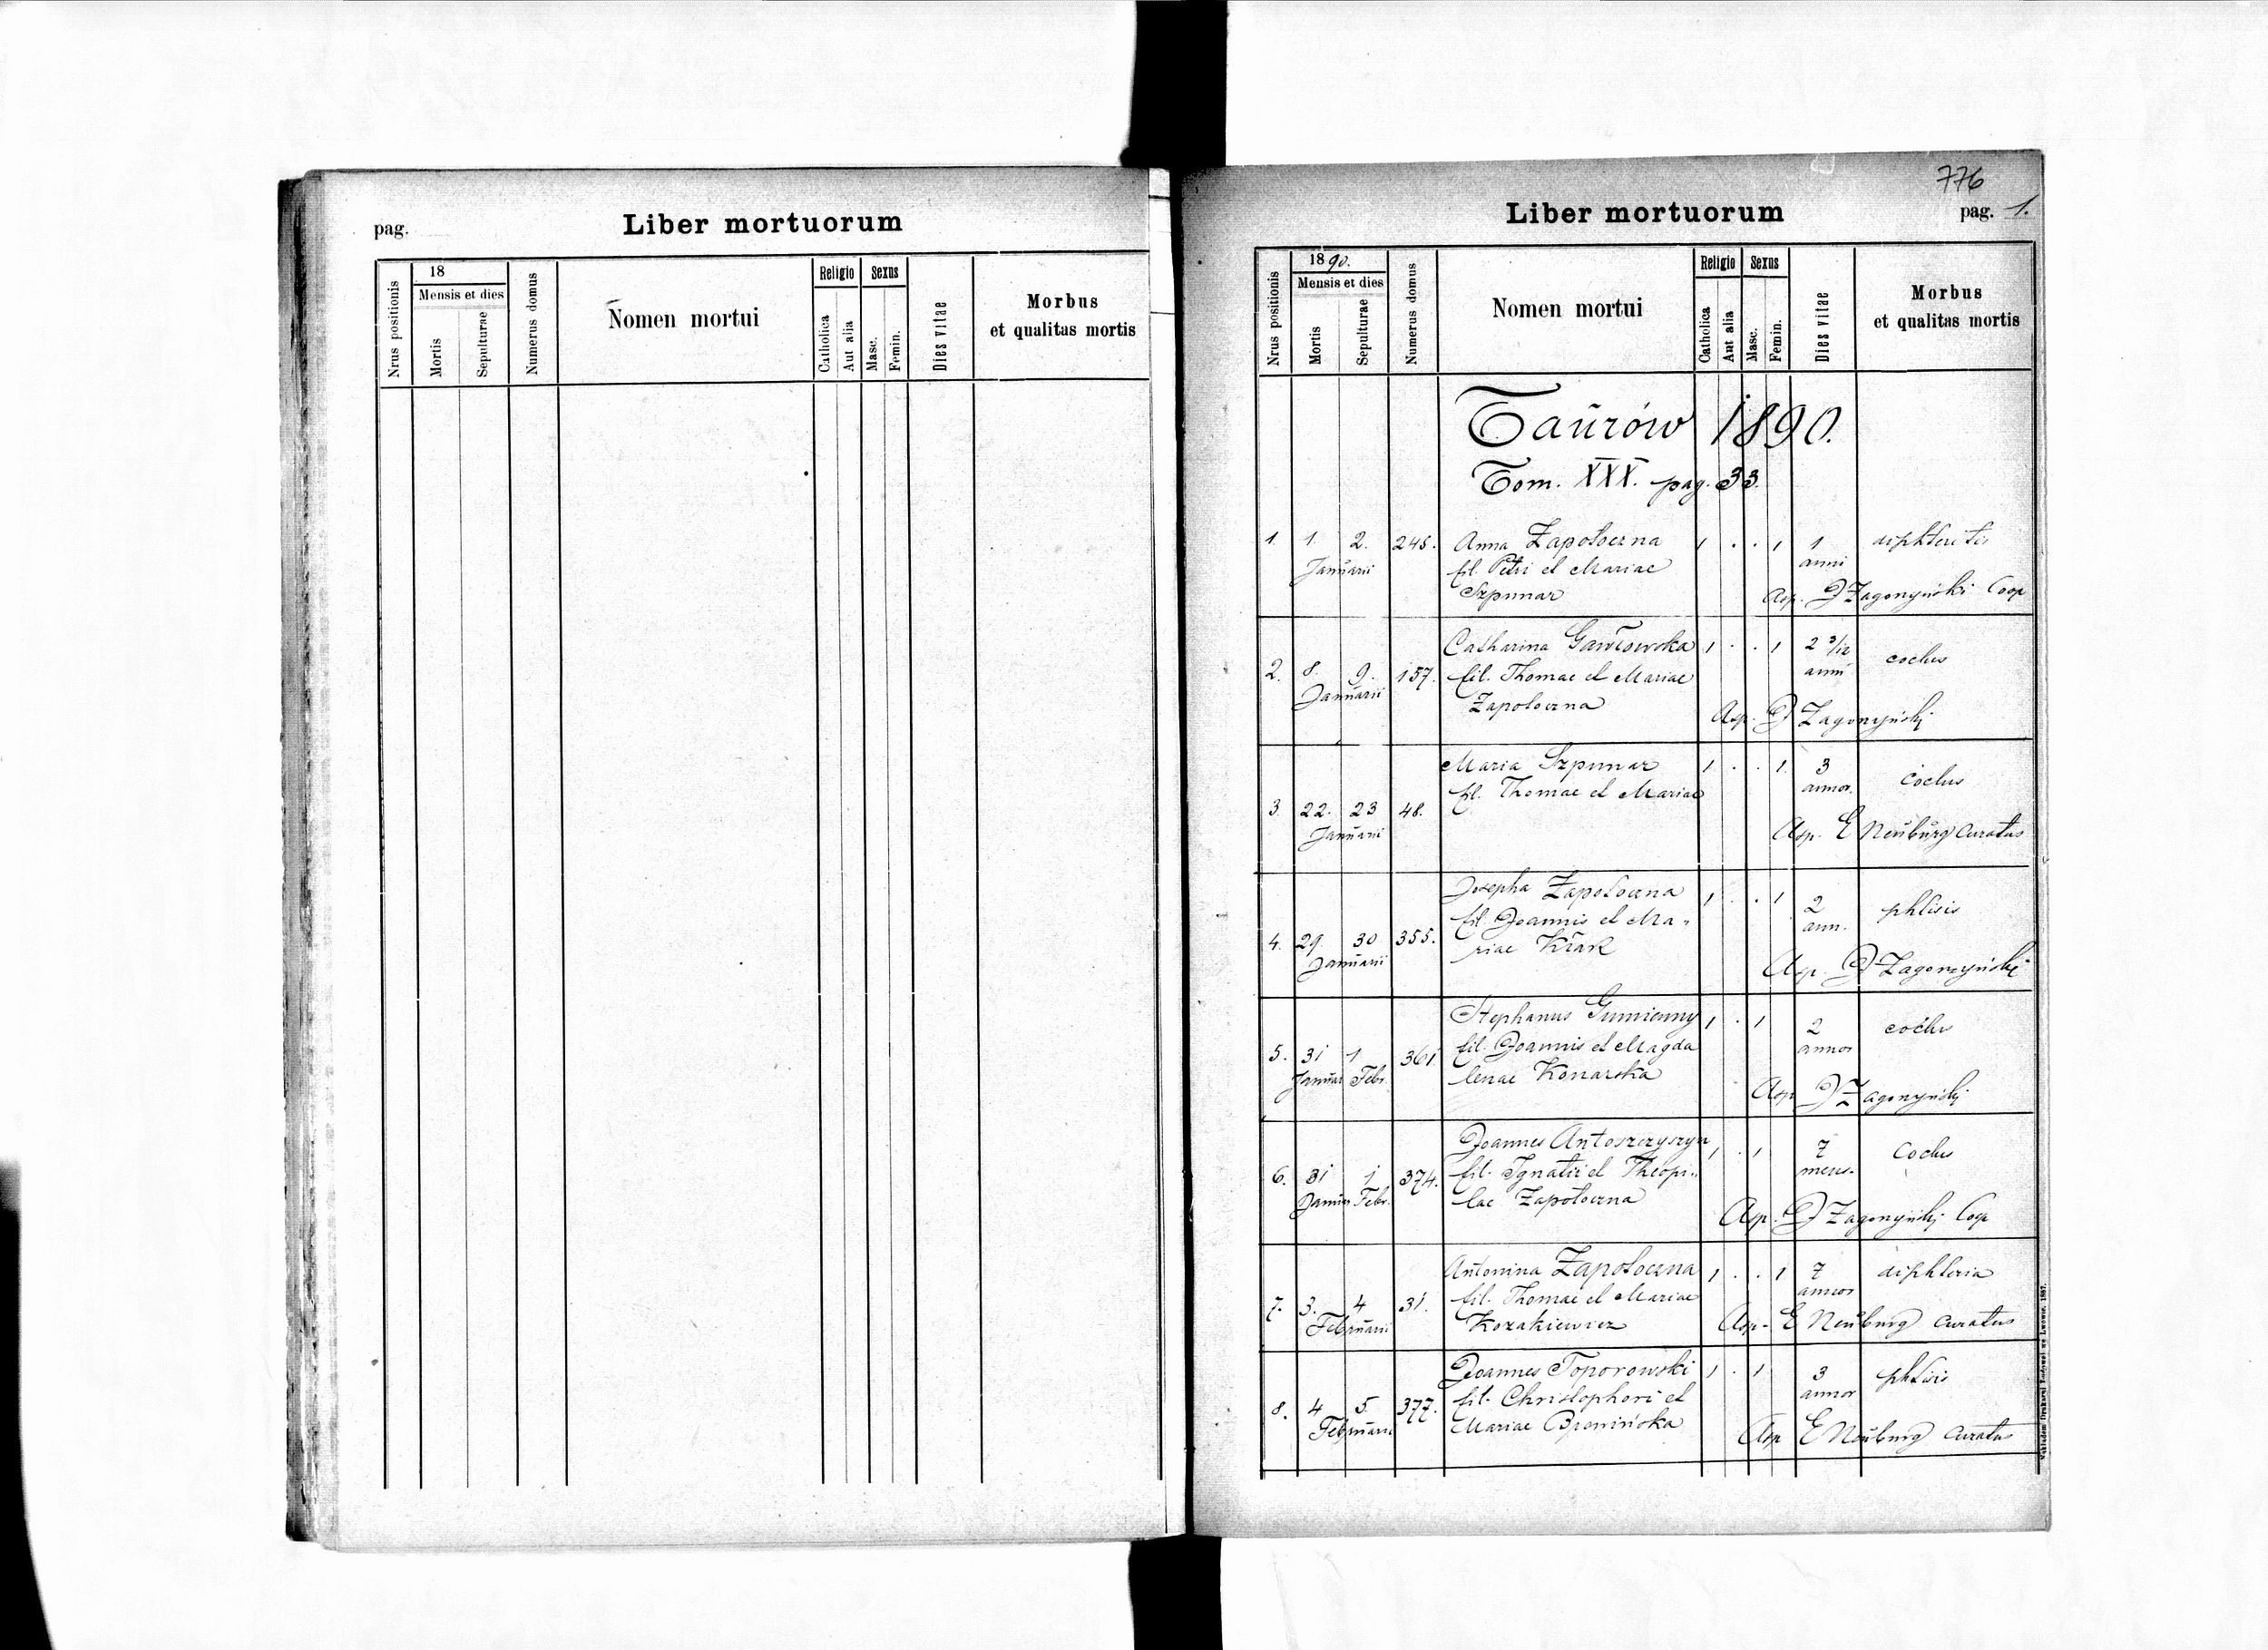 pag.
Liber mortuorum
Nrus positionis
18
Mensis et dies
Mortis
Sepulturae
Numerus domus
Nomen mortui
Religio
Catholica
Aut alia
Sexus
Masc.
Femin.
Dies vitae
Morbus
et qualitas mortis
776
Liber mortuorum
pag. 1.
Nrus positionis
1890.
Mensis et dies
Mortis
Sepulturae
Numerus domus
Nomen mortui
Religio
Catholica
Aut alia
Sexus
Masc.
Femin.
Dies vitae
Morbus
et qualitas mortis
Taurów 1890.
Tom. XXX. pag. 33.
1. 1. 2. 245. Anna Zapotoczna 1 . . 1 1 diphteritis
Januarii fil. Petri et Mariae anni
Szpunar Asp. Zagonyński Coop
2. 8. 9. 157. Catharina Gawłowska 1 . . 1 2 3/12 coclus
Januarii fil. Thomae et Mariae anni
Zapotoczna Asp. Zagonyński
3. 22. 23 48. Maria Szpunar 1 . . 1. 3 coclus
Januarii fil. Thomae et Mariae annor.
Asp. E Neuburg Curatus
4. 29. 30 355. Josepha Zapotoczna 1 . . 1 2 phtisis
Januarii fil. Joannis et Ma-
riae Krak ann.
Asp. Zagonyński
5. 31 1 361 Stephanus Gumienny 1 . 1 2 coclus
Januar Febr. fil. Joannis et Magda annor
lenae Konarska Asp Zagonyński
6. 31 1 374. Joannes Antoszczyszyn 1 . 1 7 Coclus
Januar Febr. fil. Ignatii et Theopi- mens.
lae Zapotoczna Asp. Zagonyński Coop
7. 3. 4 31. Antonina Zapotoczna 1 . . 1 7 diphteria
Februarii fil. Thomae et Mariae annor
Kozakiewicz Asp. E Neuburg Curatus
8. 4 5. 377. Joannes Toporowski 1 . 1 3 phtisis
Februarii fil. Christophori et annor
Mariae Asp E Neuburg Curatus
Nakładem Drukarni Ludowej we Lwowie. 1887.